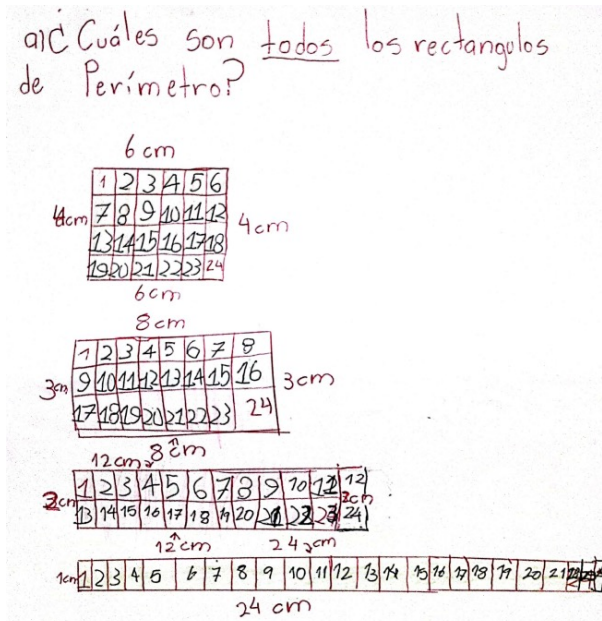 a)¿ Cuáles son todos los rectangulos
de Perímetro?
6 cm
1 2 3 4 5 6
4cm 7 8 9 10 11 12 4cm
13 14 15 16 17 18
19 20 21 22 23 24
6cm
8cm
1 2 3 4 5 6 7 8
3cm 9 10 11 12 13 14 15 16 3cm
17 18 19 20 21 22 23 24
8cm
12cm
2cm 1 2 3 4 5 6 7 8 9 10 11 12 2cm
13 14 15 16 17 18 19 20 21 22 23 24
12cm 24cm
1cm 1 2 3 4 5 6 7 8 9 10 11 12 13 14 15 16 17 18 19 20 21
24 cm